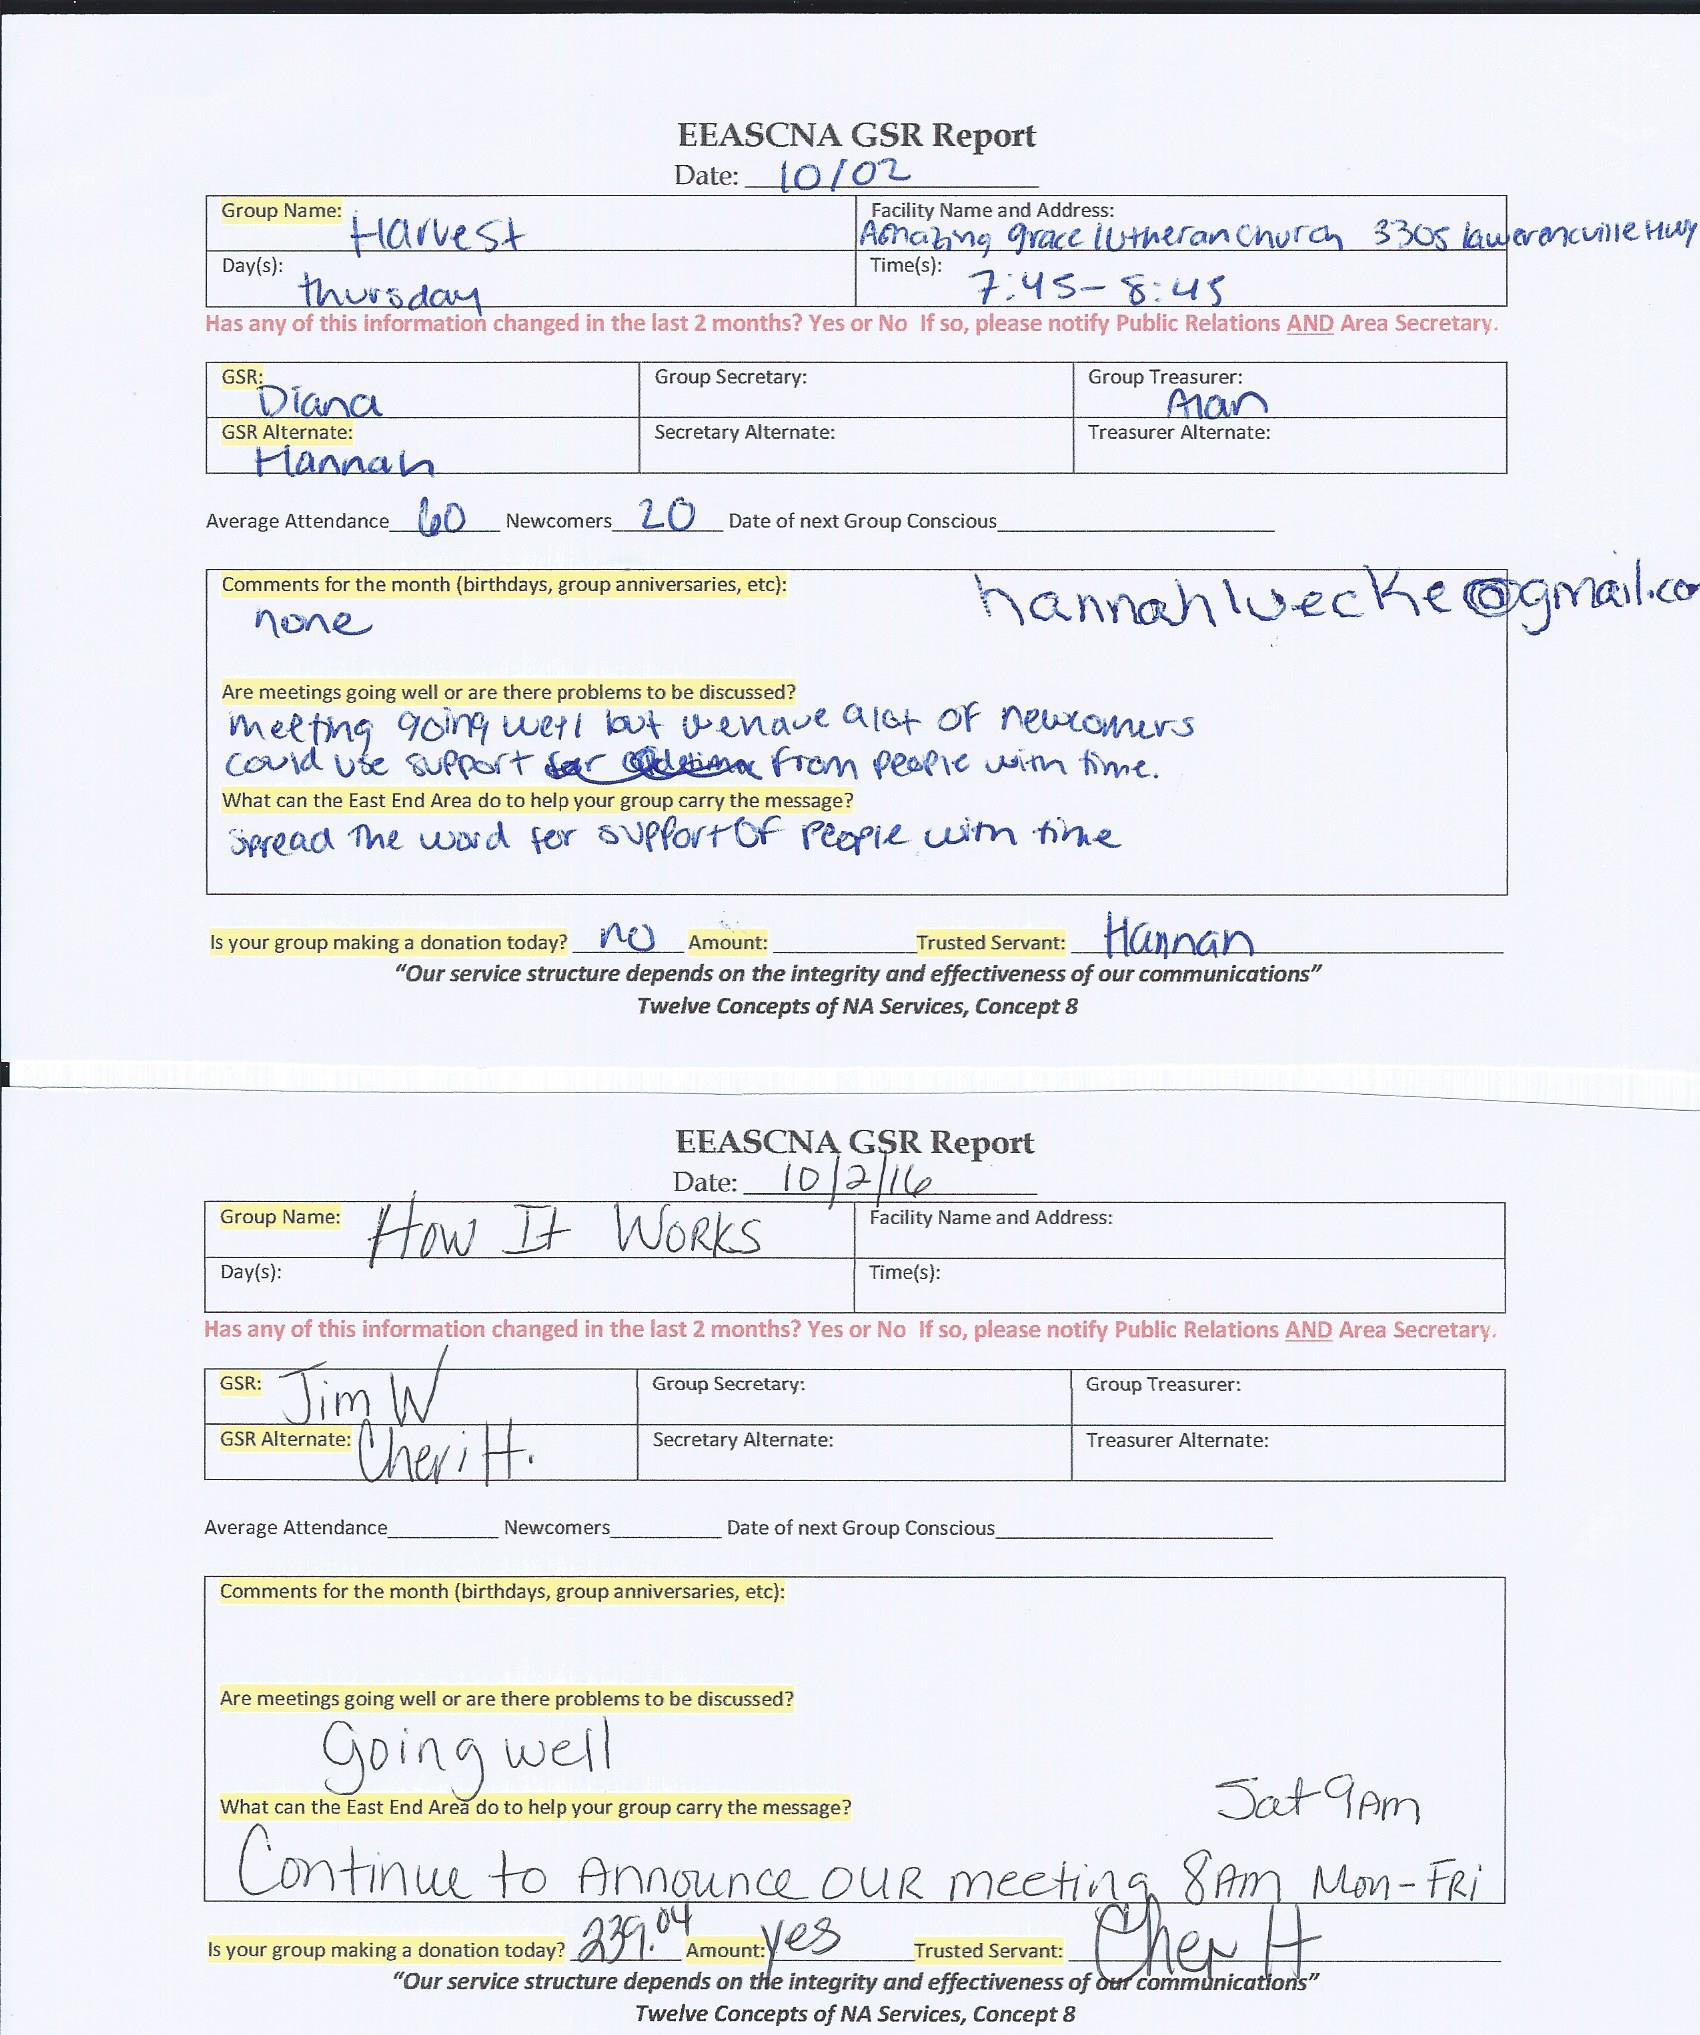 EEASCNA GSR Report
Date: 10/02
Group Name: Harvest
Facility Name and Address: Amazing grace lutheran church 3305 lawerencville Hwy
Day(s): thursday
Time(s): 7:45-8:45
Has any of this information changed in the last 2 months? Yes or No If so, please notify Public Relations AND Area Secretary.
GSR: Diana
Group Secretary:
Group Treasurer: Alan
GSR Alternate: Hannah
Secretary Alternate:
Treasurer Alternate:
Average Attendance 60 Newcomers 20 Date of next Group Conscious
Comments for the month (birthdays, group anniversaries, etc): hannahluecke@gmail.co
none
Are meetings going well or are there problems to be discussed?
meeting going well but we have alot of newcomers
could use support from people with time.
What can the East End Area do to help your group carry the message?
spread the word for support of people with time
Is your group making a donation today? no Amount: Trusted Servant: Hannah
“Our service structure depends on the integrity and effectiveness of our communications”
Twelve Concepts of NA Services, Concept 8
EEASCNA GSR Report
Date: 10/2/16
Group Name: How It Works
Facility Name and Address:
Day(s):
Time(s):
Has any of this information changed in the last 2 months? Yes or No If so, please notify Public Relations AND Area Secretary.
GSR: Jim W
Group Secretary:
Group Treasurer:
GSR Alternate: Cheri H.
Secretary Alternate:
Treasurer Alternate:
Average Attendance Newcomers Date of next Group Conscious
Comments for the month (birthdays, group anniversaries, etc):
Are meetings going well or are there problems to be discussed?
Going well
Sat 9am
What can the East End Area do to help your group carry the message?
Continue to Announce our meeting 8Am Mon-Fri
Is your group making a donation today? 239.04 Amount: yes Trusted Servant: Cheri H
“Our service structure depends on the integrity and effectiveness of our communications”
Twelve Concepts of NA Services, Concept 8